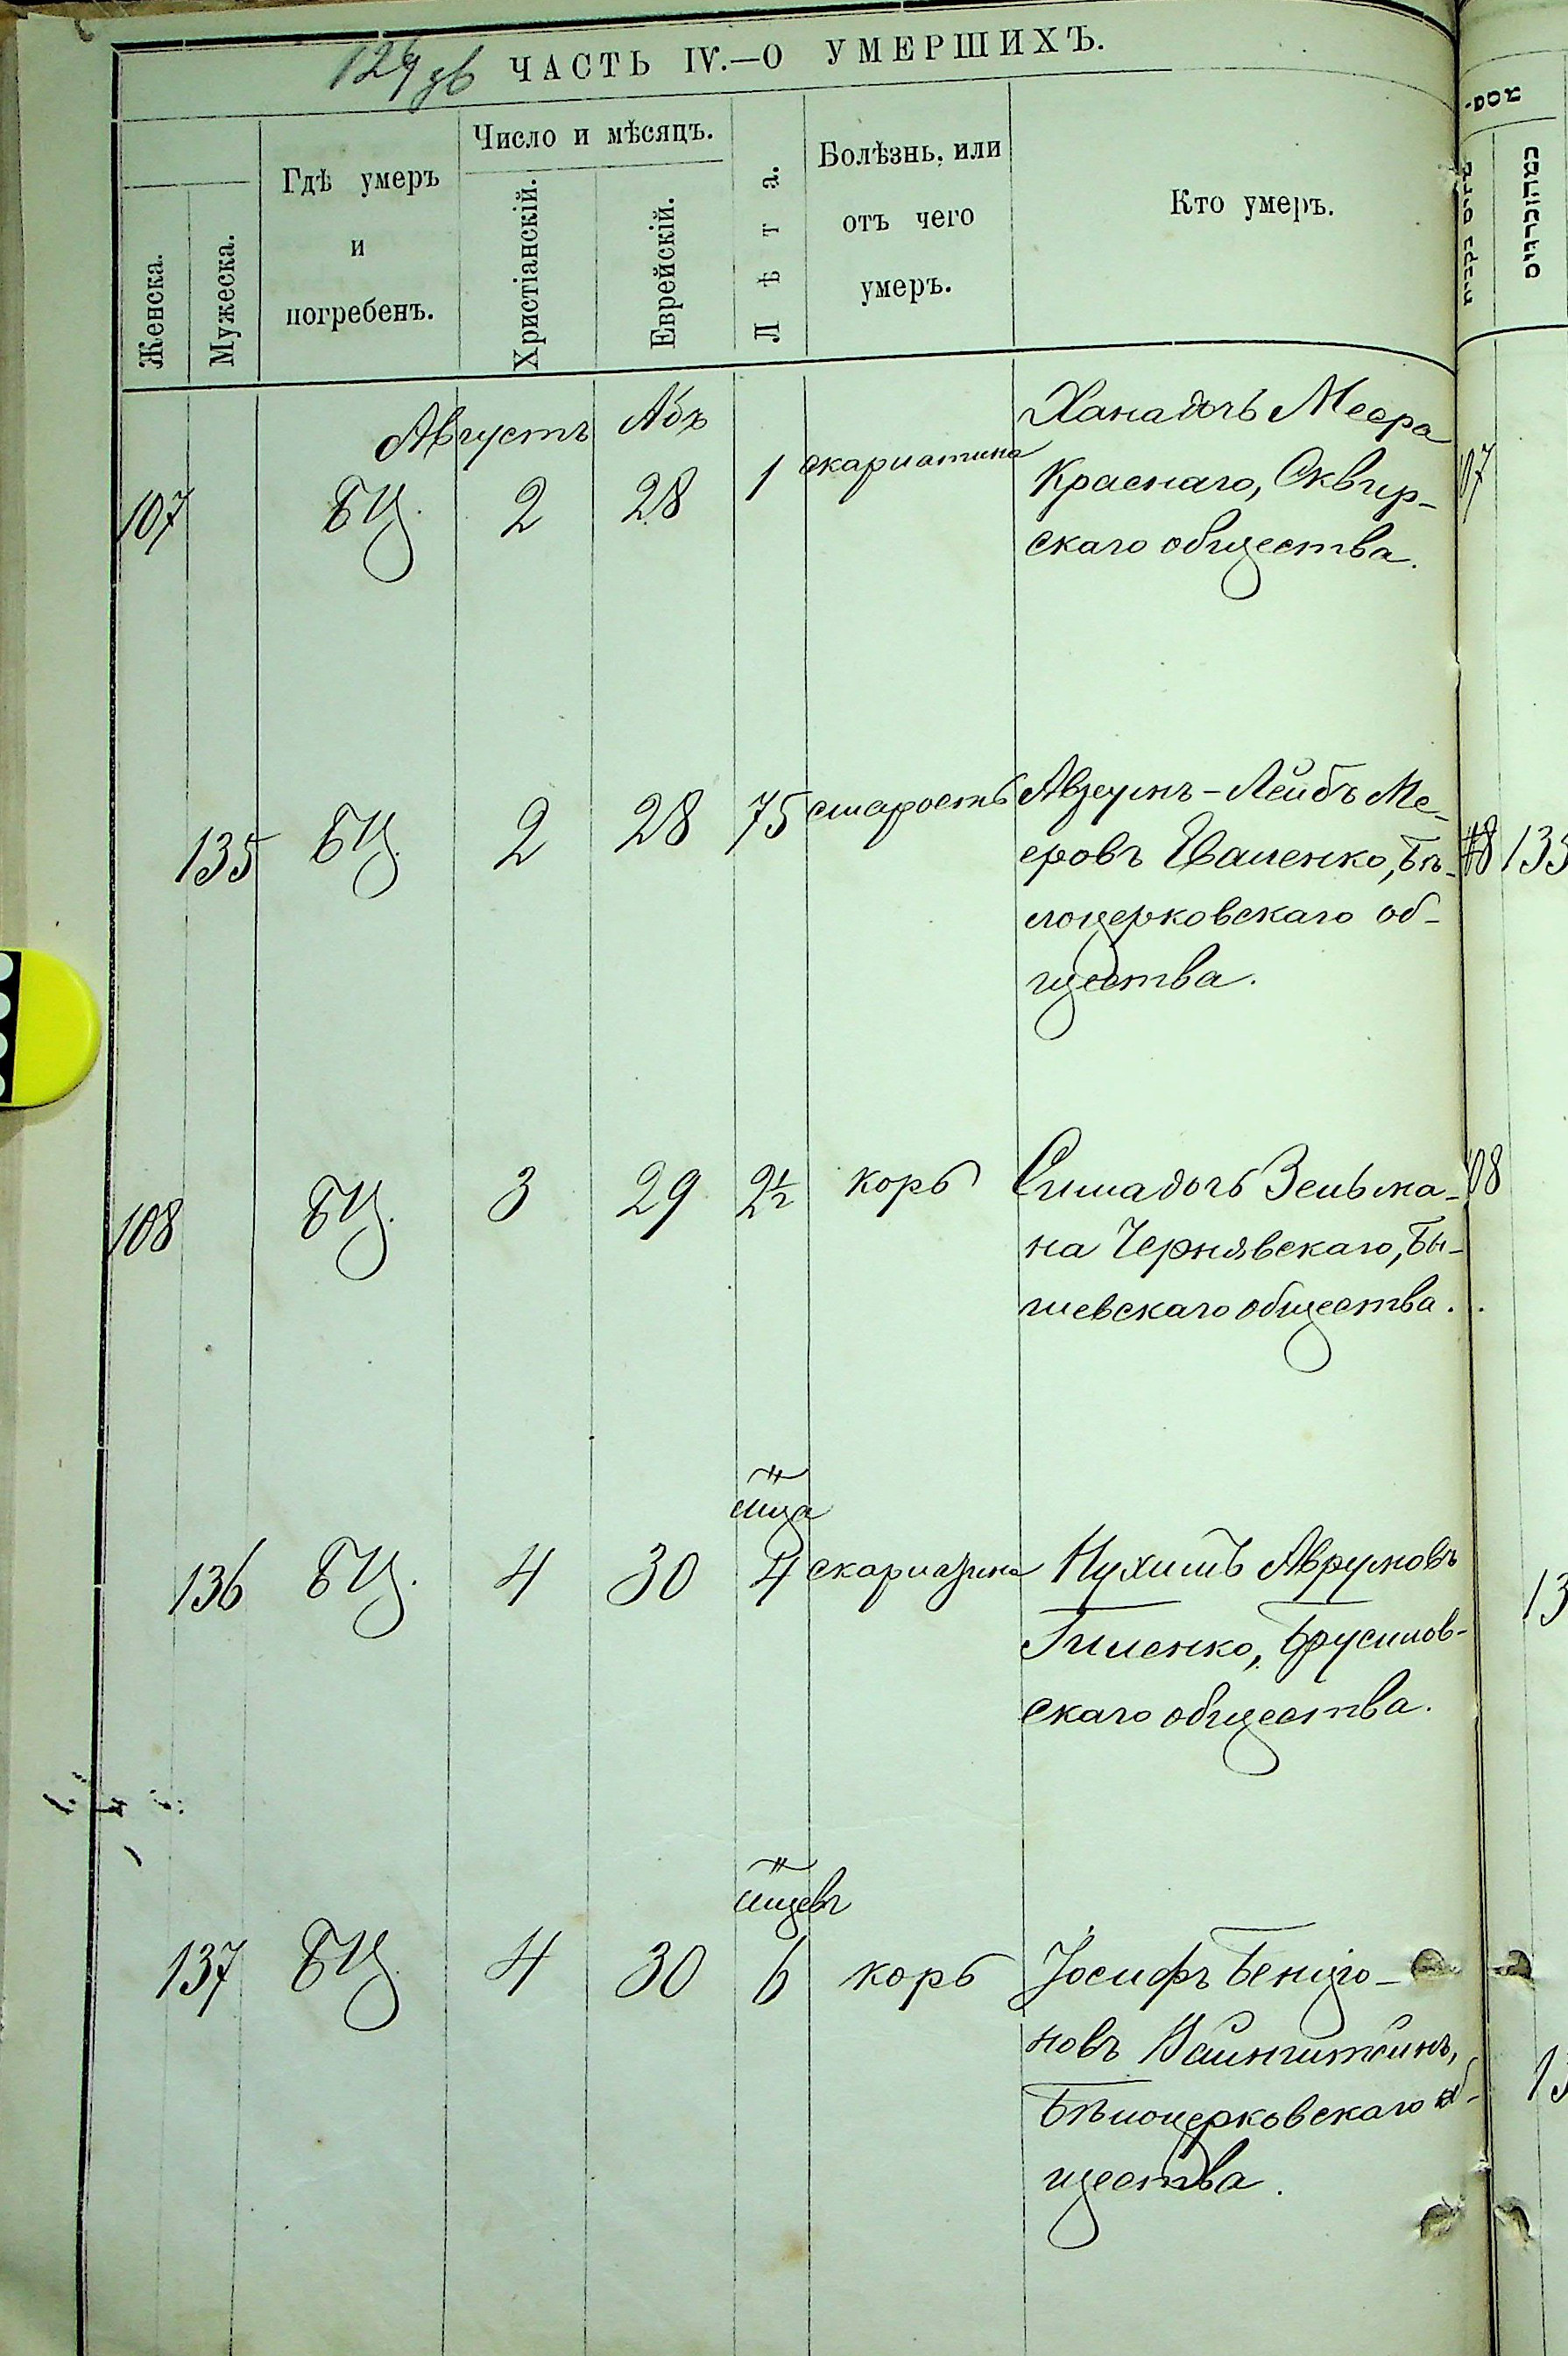 ЧАСТЬ IV.—О УМЕРШИХЪ.
Женска.
Мужеска.
Гдѣ умеръ
и
погребенъ.
Число и мѣсяцъ.
Христіанскій.
Еврейскій.
Лѣта.
Болѣзнь, или
отъ чего
умеръ.
Кто умеръ.
Августъ Абъ
107 БЦ. 2 28 1 скарлатина
Хана дочь Меера
Краснаго, Сквир-
скаго общества.
135 БЦ. 2 28 75 старость
Авзеръ-Лейбъ Ме-
еровъ Цваленко, Бѣ-
лоцерковскаго об-
щества.
108 БЦ. 3 29 2½ корь
Сима дочь Зельма-
на Чернявскаго, Бы-
шевскаго общества.
мца
136 БЦ. 4 30 4 скарлатина
Нухимъ Авруповъ
Гиленко, Брусилов-
скаго общества.
мцевъ
137 БЦ. 4 30 6 корь
Іосифъ Бенціо-
новъ Вайнштейнъ,
Бѣлоцерковскаго об-
щества.
107
135
108